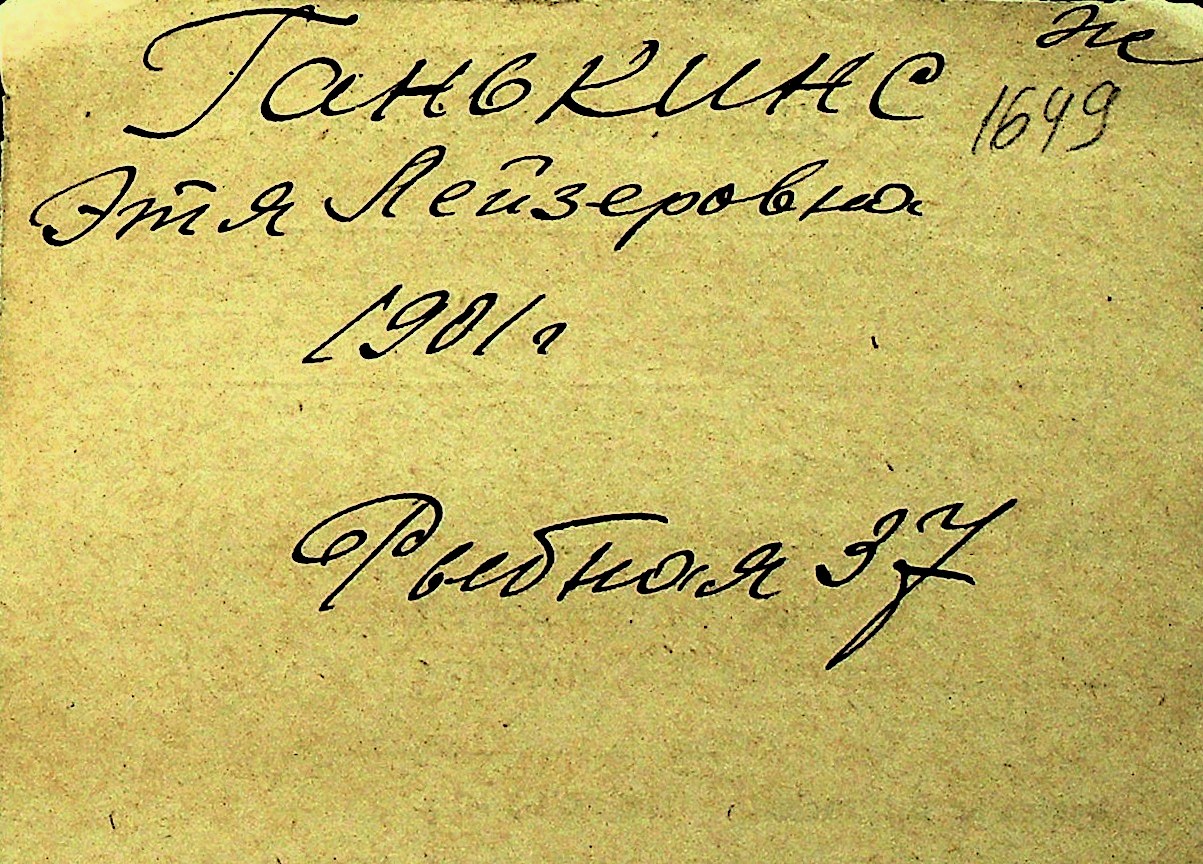 Ганькинс же
1649
Этя Лейзеровна
1901 г
Рыбная 37